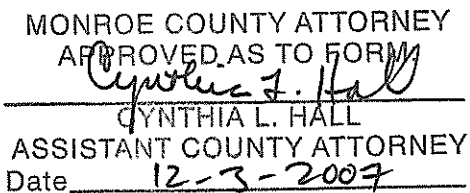 MONROE COUNTY ATTORNEY
APPROVED AS TO FORM
Cynthia L. Hall
CYNTHIA L. HALL
ASSISTANT COUNTY ATTORNEY
Date 12-3-2007